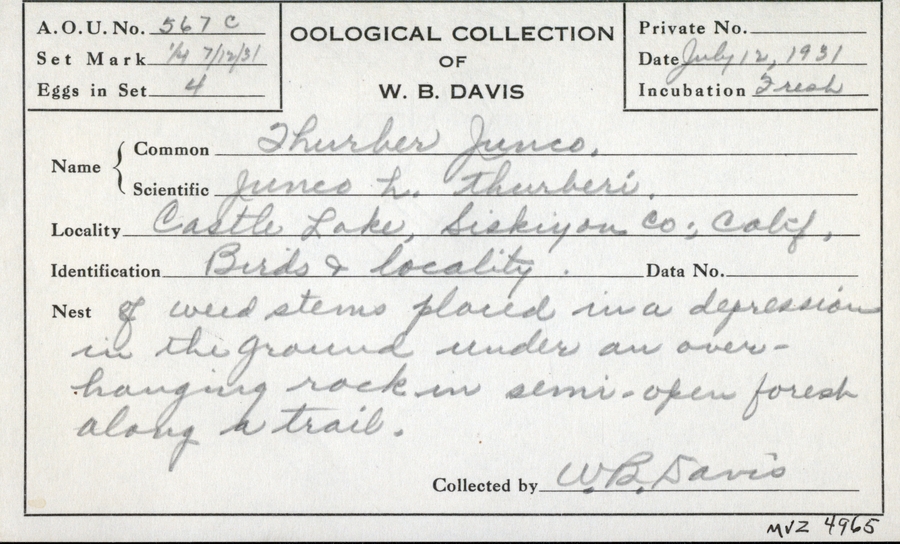 A.O.U. No. 567 c
Set Mark 1/4 7/12/31
Eggs in Set 4
OOLOGICAL COLLECTION
OF
W. B. DAVIS
Private No.
Date July 12, 1931
Incubation Fresh
Name { Common Thurber Junco.
Scientific Junco h. thurberi.
Locality Castle Lake, Siskiyou Co., Calif.
Identification Birds & locality. Data No.
Nest of weed stems placed in a depression
in the ground under an over-
hanging rock in semi-open forest
along a trail.
Collected by W. B. Davis
MVZ 4965